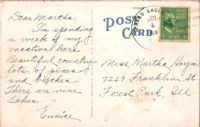 Dear Martha:
I'm spending
a week of my
vacation here.
Beautiful country
lots of pines
and birches
There are nine
Lakes.
Eunice
POST
CARD
Miss Martha
7229 Franklin St
Forest Park, Ill